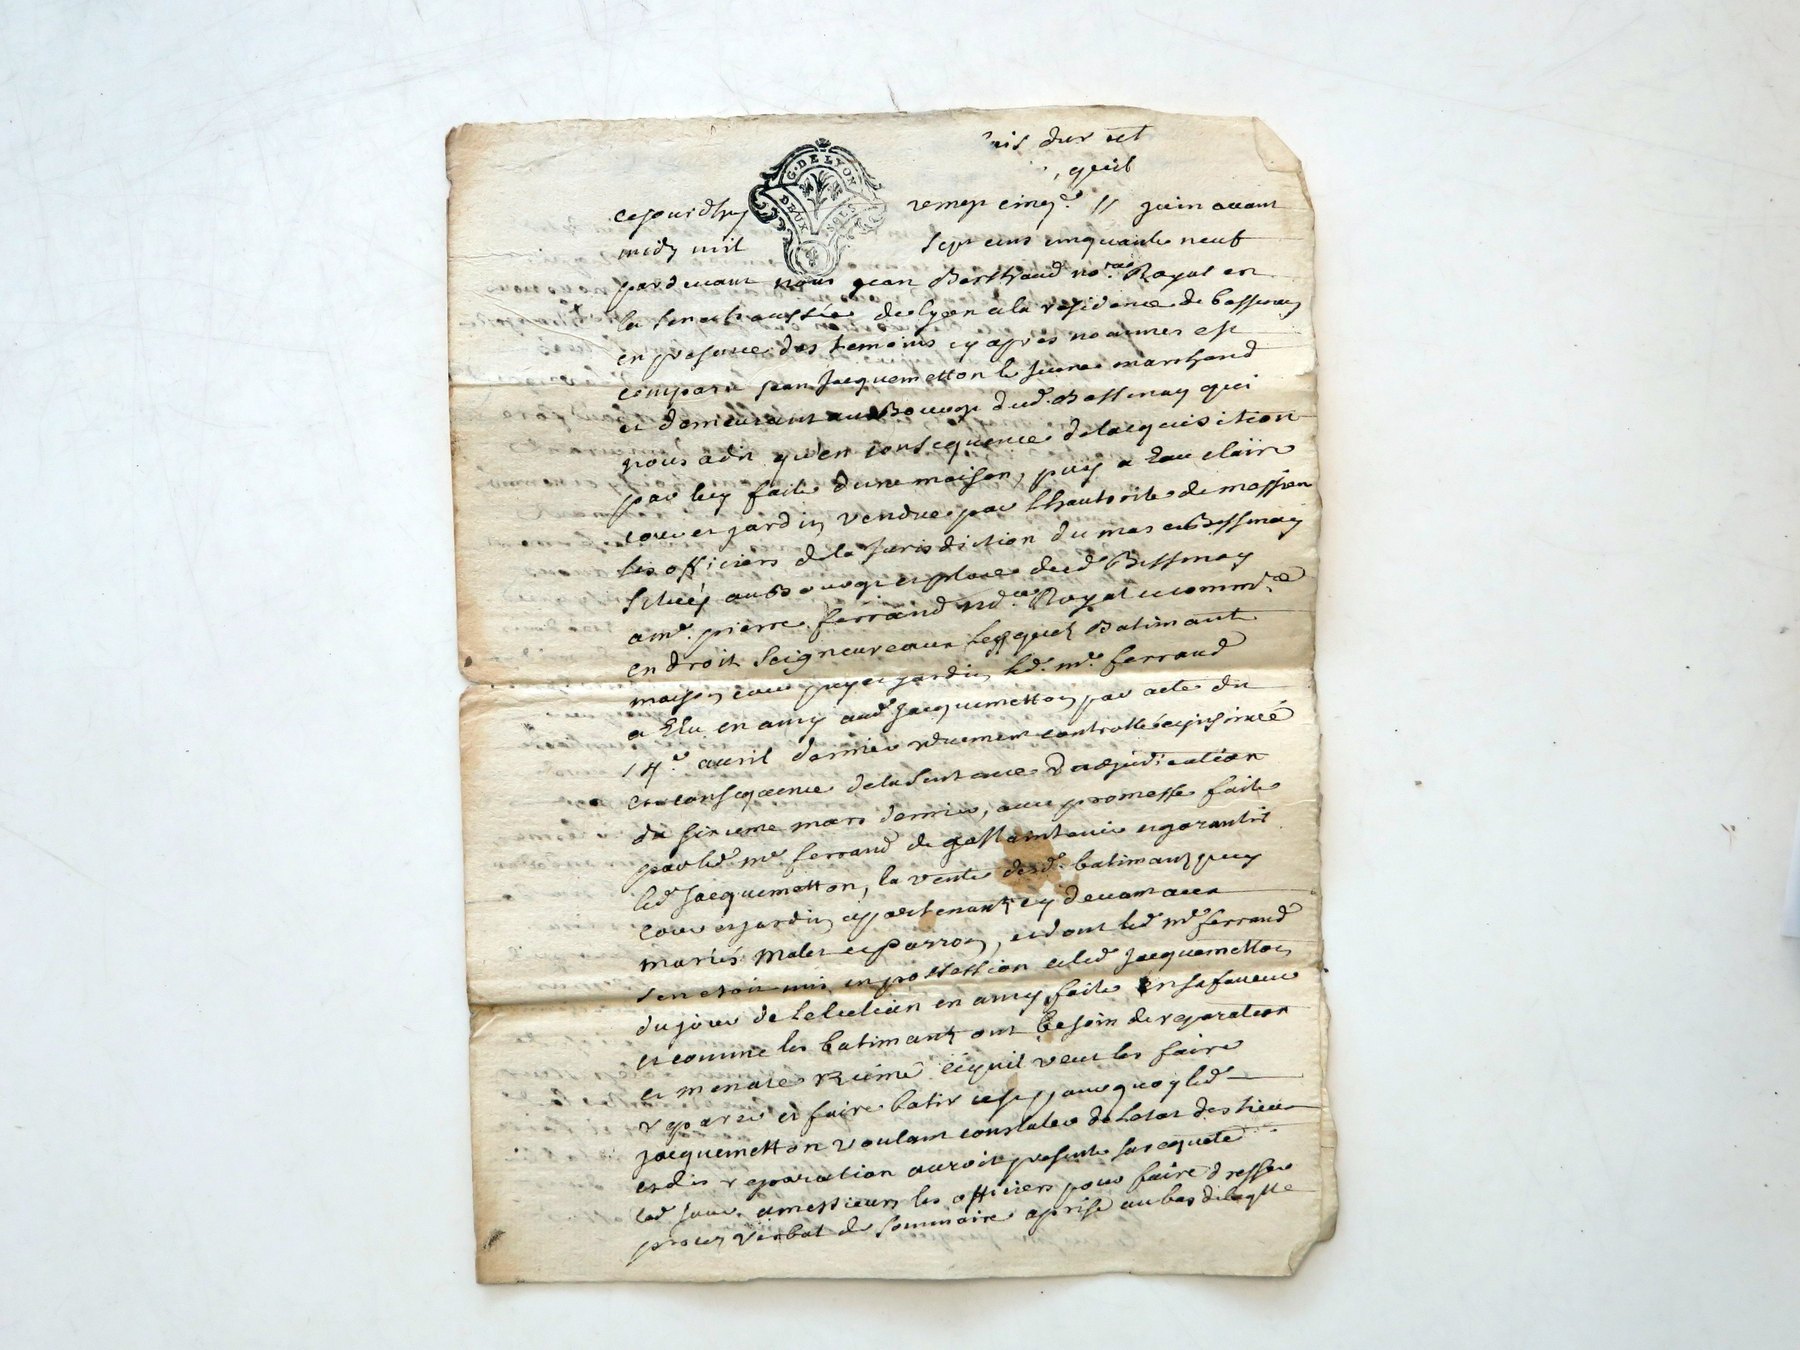 G. DE LYON
DEUX SOLS
dux oct
quil
cejourdhuy vingt cinq.e juin avant
midy mil sept cens cinquante neuf
pardevant nous jean Berthaud no.re Royal en
la senechaussée de Lyon a la residence de bessenay
en presence des temoins cy apres nommes est
comparu jean Jacquemetton le jeune marchand
et demeurant au Bourg dud. Bessenay qui
nous a dit qu'en consequence de lacquisition
par luy faite dune maison, puy a eau claire
cour et jardin vendue par lhautorité de messieu
les officiers de la Jurisdiction du mas et Bessenay
situés au Bourg et place dud Bessenay
a m.e pierre ferrand no.re Royal et comm.re
en droit seigneureaux lesquels Batimant
maison cour puy et jardin led. m.e ferrand
a Elu en amy aud Jacquemetton par acte du
14.e avril dernier duement controllé et insinué
en consequence de la sentance dadjudication
du sixieme mars dernier, avec promesse faite
par led me ferrand de maintenir et garantir
led Jacquemetton, la vente desd. batimant puy
cour et jardin appartenant cy devant aux
mariés Malet et parron, et dont led m.e ferrand
sen etoit mis en possession et led Jacquemetton
du jour de lelection en amy faite en sa faveur
et comme les batimant ont besoin de reparation
et menace Ruine et quil veut les faire
reparer et faire batir cest pourquoy led
Jacquemetton voulant constater de letat des lieux
et dis reparation auroit presenté sa requete
led jour a messieurs les officiers pour faire dresser
procez verbal de sommaire aprise au bas de laqlle